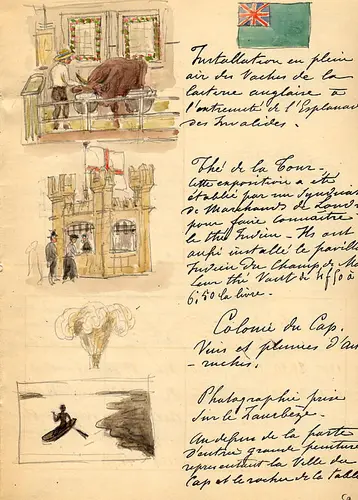 Installation en plein
air des Vaches de la
laiterie anglaise à
l'extrémité de l'Esplanade
des Invalides.
Thé de la Tour.
Cette exposition a été
établie par un Syndicat
de Marchands de Londres
pour faire connaître
le thé Indien. Ils ont
aussi installé le pavillon
Indien du Champ de Ma
Leur thé vaut de 4f50 à
6,50 la livre.
Colonie du Cap.
Vins et plumes d'au
-ruches.
Photographie prise
sur le Zambèze.
Au dessus de la porte
d'entrée grande peinture
représentant la Ville du
Cap et le roche de la Table